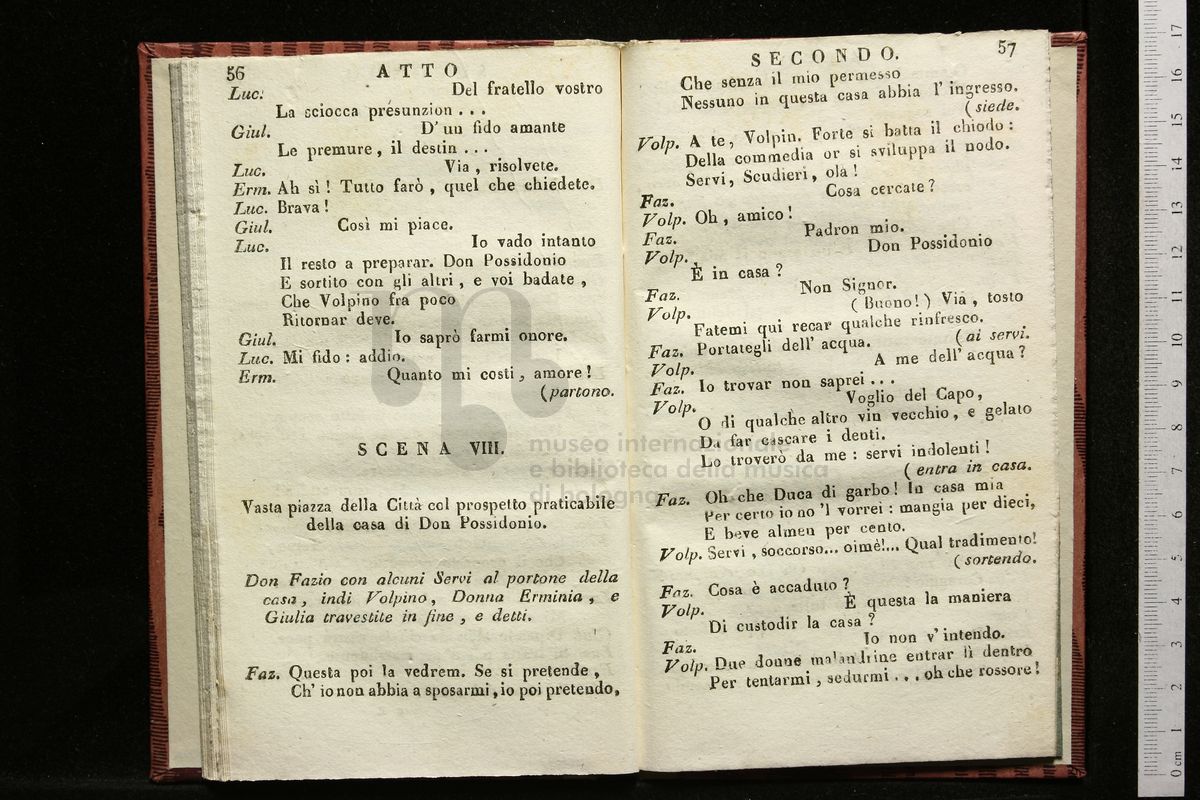 56
ATTO
Luc. Del fratello vostro
La sciocca présunzion . . .
Giul. D' un fido amante
Le premure, il destin . . .
Luc. Via, risolvete.
Erm. Ah sì! Tutto farò, quel che chiedete.
Luc. Brava!
Giul. Così mi piace.
Luc. Io vado intanto
Il resto a preparar. Don Possidonio
E sortito con gli altri, e voi badate,
Che Volpino fra poco
Ritornar deve.
Giul. Io saprò farmi onore.
Luc. Mi fido: addio.
Erm. Quanto mi costi, amore!
(partono.
SCENA VIII.
Vasta piazza della Città col prospetto praticabile
della casa di Don Possidonio.
Don Fazio con alcuni Servi al portone della
casa, indi Volpino, Donna Erminia, e
Giulia travestite in fine, e detti.
Faz. Questa poi la vedrem. Se si pretende,
Ch' io non abbia a sposarmi, io poi pretendo,
SECONDO.
57
Che senza il mio permesso
Nessuno in questa casa abbia l' ingresso.
(siede.
Volp. A te, Volpin. Forte si batta il chiodo:
Della commedia or si sviluppa il nodo.
Servi, Scudieri, olà!
Faz. Cosa cercate?
Volp. Oh, amico!
Faz. Padron mio.
Volp. Don Possidonio
È in casa?
Faz. Non Signor.
Volp. (Buono!) Via, tosto
Fatemi qui recar qualche rinfresco.
Faz. Portategli dell' acqua. (ai servi.
Volp. A me dell' acqua?
Faz. Io trovar non saprei . . .
Volp. Voglio del Capo,
O di qualche altro vin vecchio, e gelato
Da far cascare i denti.
Lo troverò da me: servi indolenti!
(entra in casa.
Faz. Oh che Duca di garbo! In casa mia
Per certo io no 'l vorrei: mangia per dieci,
E beve almen per cento.
Volp. Servi, soccorso... oimè!... Qual tradimento!
(sortendo.
Faz. Cosa è accaduto?
Volp. È questa la maniera
Di custodir la casa?
Faz. Io non v' intendo.
Volp. Due donne malandrine entrar lì dentro
Per tentarmi, sedurmi . . . oh che rossore!
museo internazionale
e biblioteca della musica
di bologna
0 cm 1 2 3 4 5 6 7 8 9 10 11 12 13 14 15 16 17